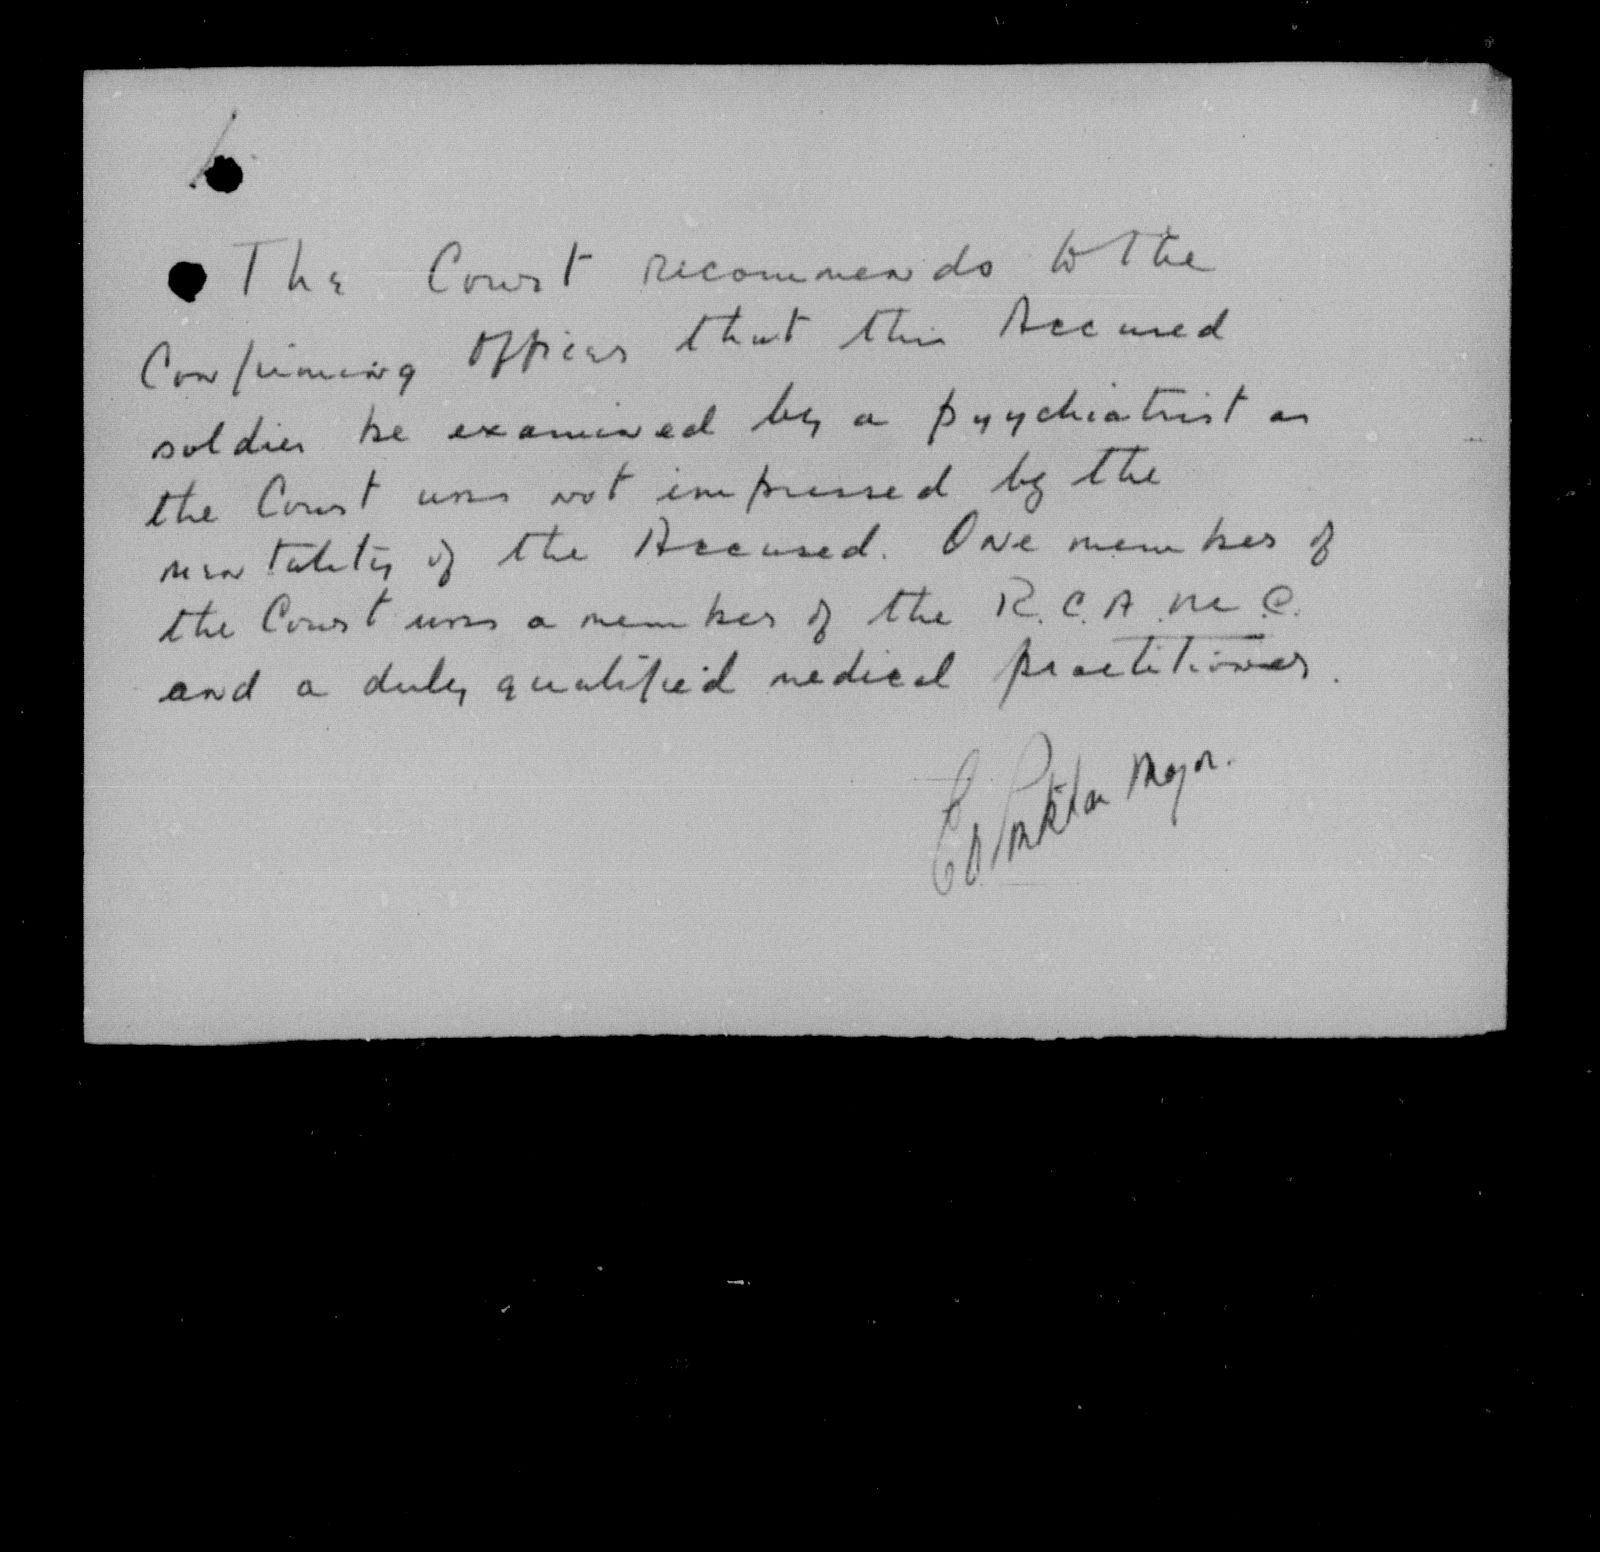 The Court recommends to the
Confirming Officer that this Accused
soldier be examined by a psychiatrist as
the Court was not impressed by the
mentality of the Accused. One member of
the Court was a member of the R.C.A.M.C.
and a duly qualified medical practitioner.
Major.